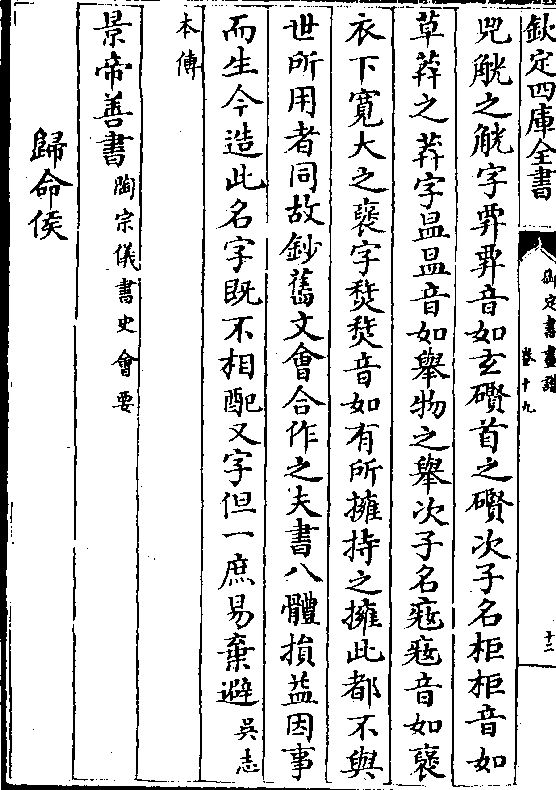 欽定四庫全書
御定書畫譜
卷十九
十二
兕觥之觥字𢍰𢍰音如玄礥首之礥次子名㭏㭏音如
草莽之莽字昷昷音如舉物之舉次子名𡨥𡨥音如褒
衣下寛大之褒字㷟㷟音如有所擁持之擁此都不與
世所用者同故鈔舊文㑹合作之夫書八體損益因事
而生今造此名字既不相配又字但一庶易棄避吳志
本傳
景帝善書陶宗儀書史㑹要
歸命侯